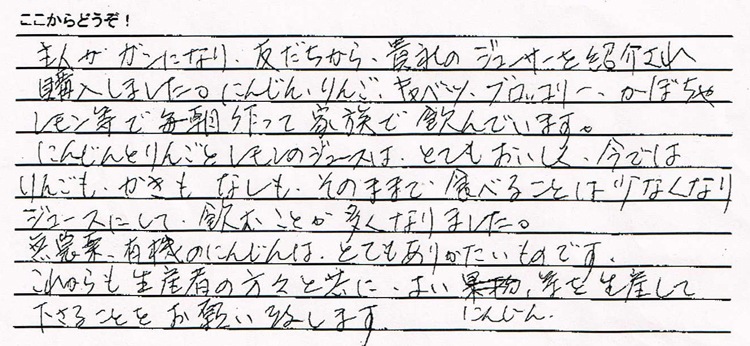 ここからどうぞ！
主人がガンになり、友だちから、貴社のジューサーを紹介され
購入しました。にんじん、りんご、キャベツ、ブロッコリー、かぼちゃ
レモン等で毎朝作って家族で飲んでいます。
にんじんとりんごとレモンのジュースは、とてもおいしく、今では
りんごも、かきも、なしも、そのままで食べることは少なくなり
ジュースにして、飲むことが多くなりました。
無農薬、有機のにんじんは、とてもありがたいものです。
これからも生産者の方々と共に、よい果物、等を生産して
にんじん、
下さることをお願い致します